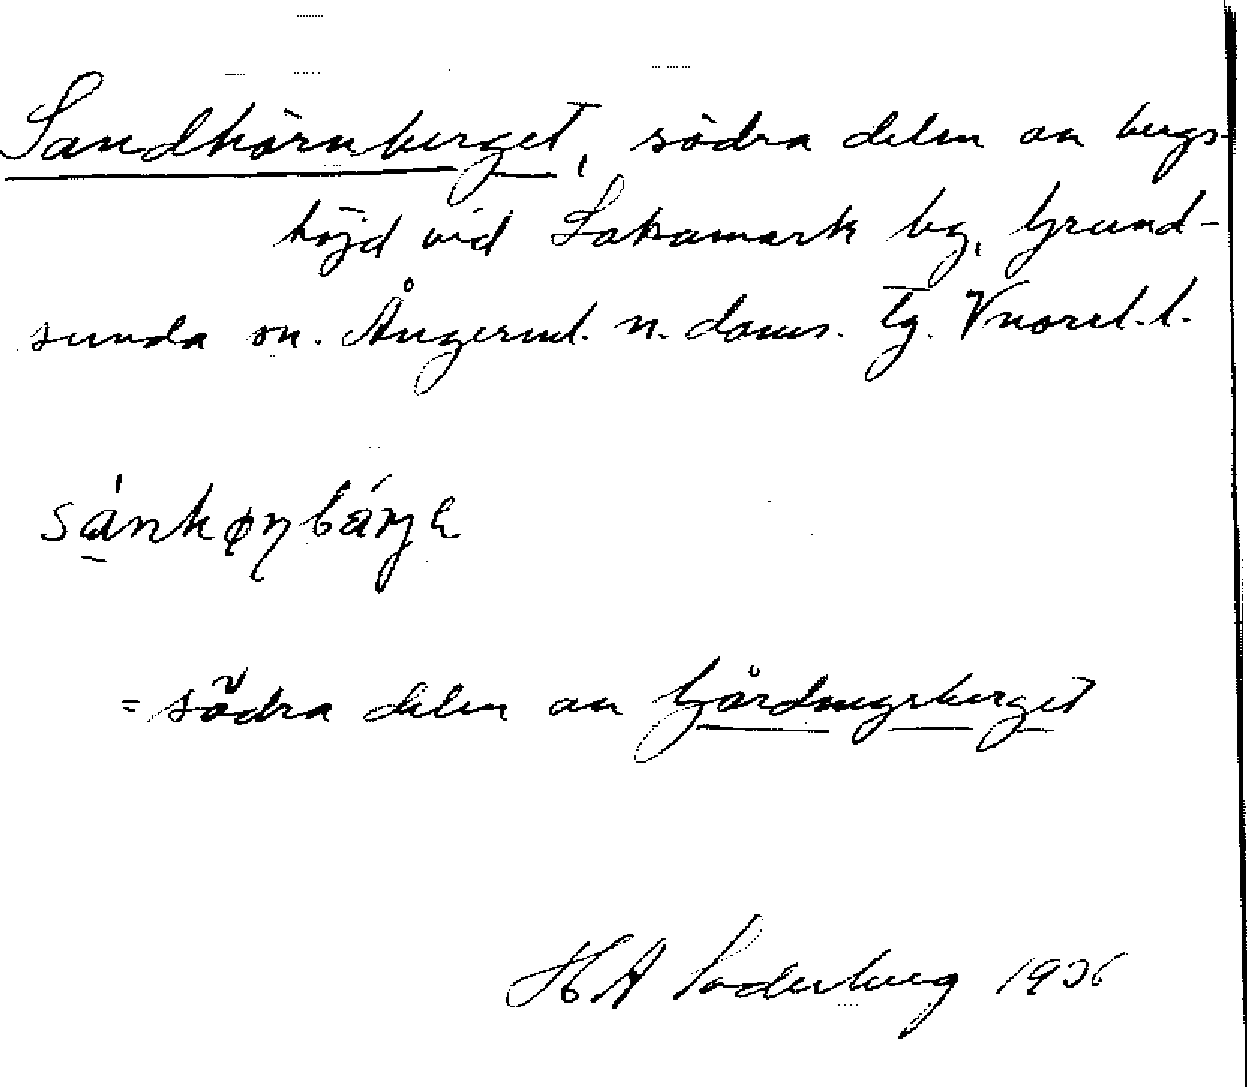 Sandhörnberget, södra delen av bergs-
höjd vid Saluamark by, Grund-
sunda sn. Ångerml. n. doms. Tg. Vnorrl. l.
= södra delen av Gårdingsberget
H A Söderberg 1936